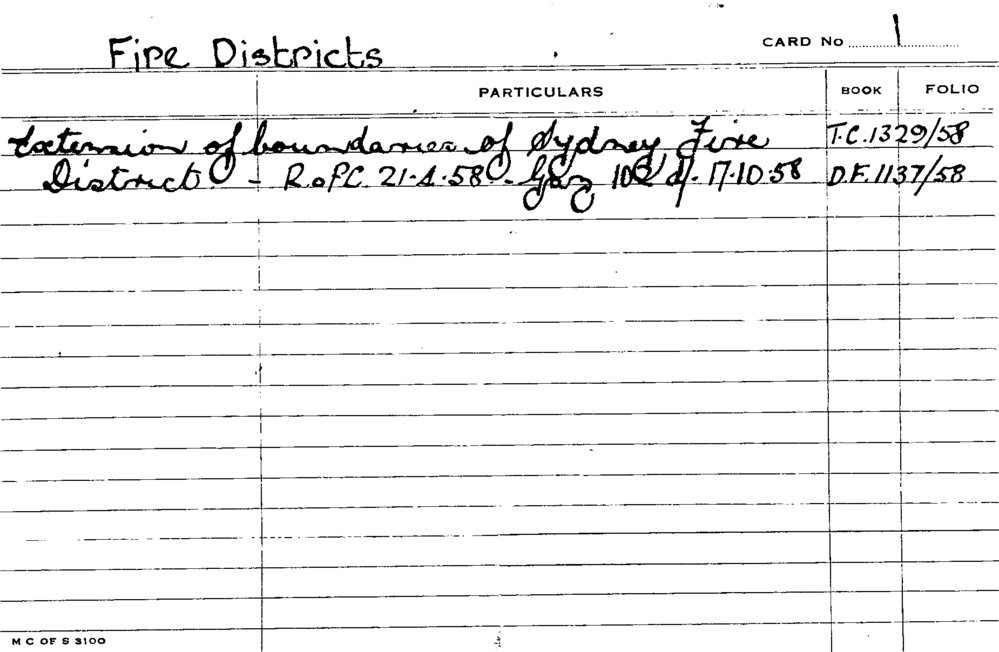 Fire Districts
CARD No 1
PARTICULARS BOOK FOLIO
Extension of boundaries of Sydney Fire T.C. 1329/58
District - R.of C. 21.4.58 - Gaz 102 of 17.10.58 D.F. 1137/58
M C OF S 3100